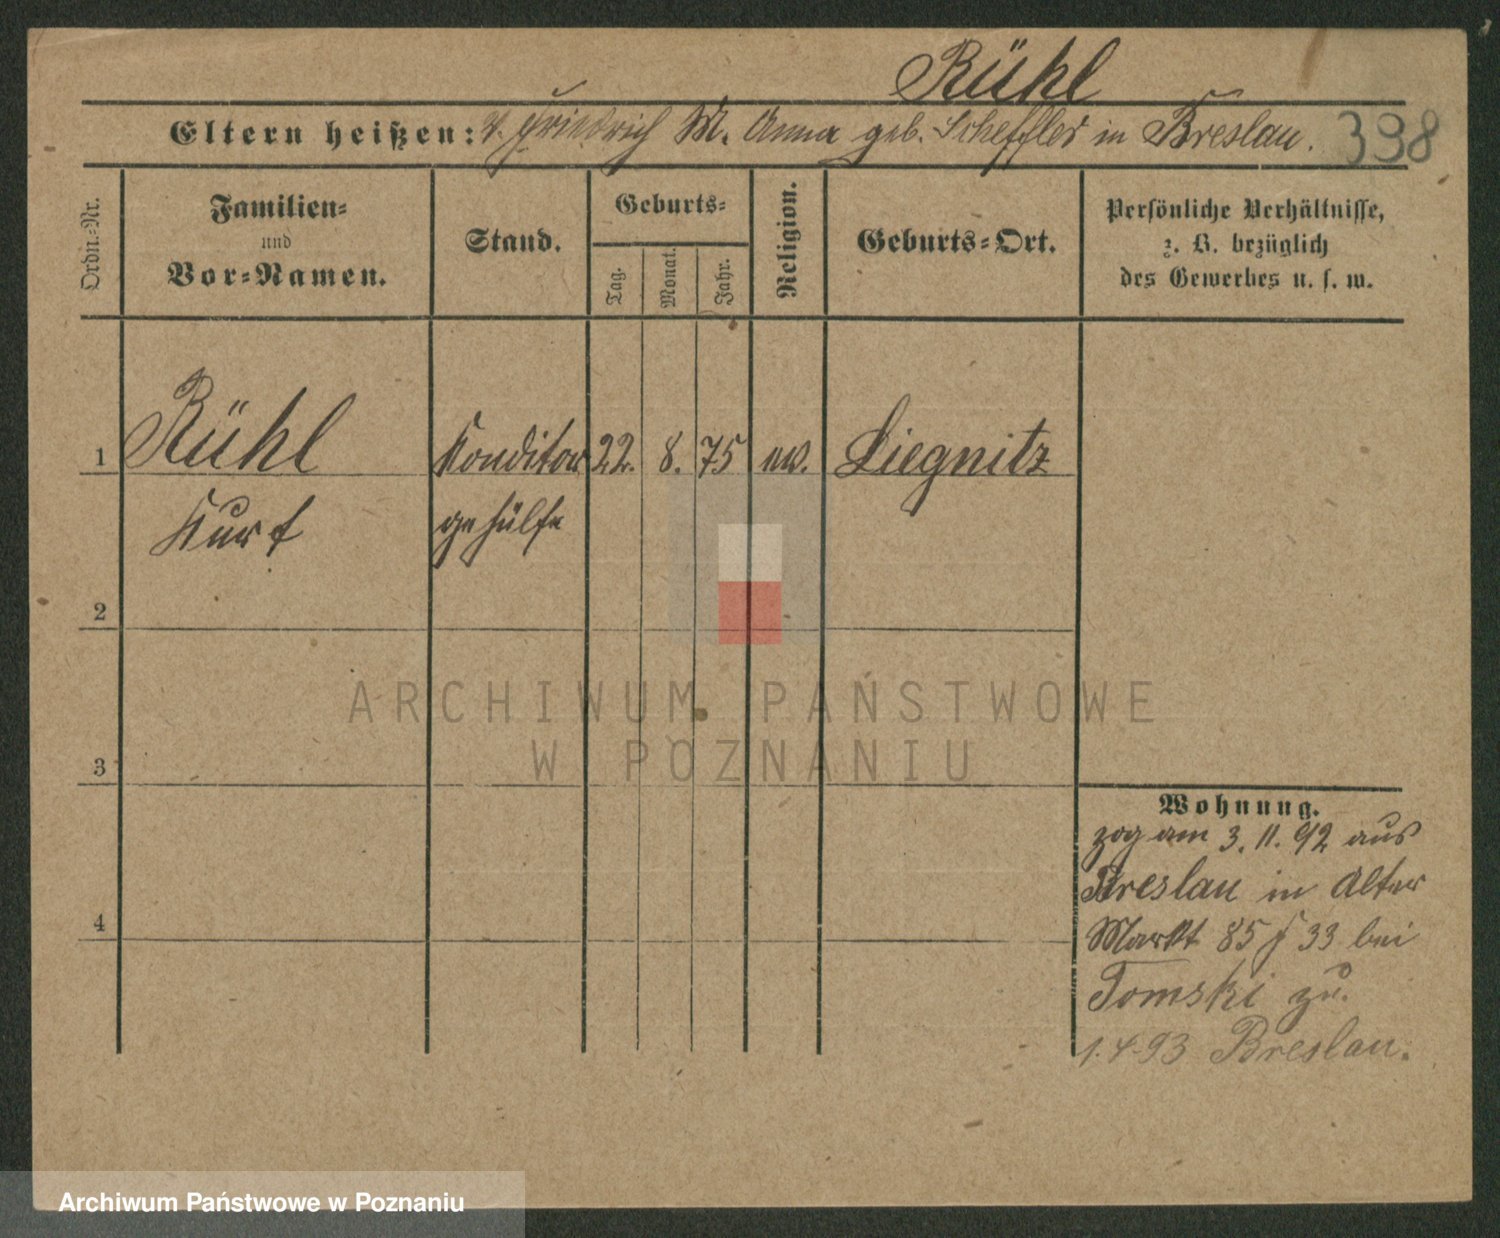 Rühl
Eltern heißen: V. Friedrich M. Anna geb. Scheffler in Breslau. 398
Ordn.-Nr.
Familien-
und
Vor-Namen.
Stand.
Geburts-
Tag.
Monat.
Jahr.
Religion.
Geburts-Ort.
Persönliche Verhältnisse,
z. B. bezüglich
des Gewerbes u. s. w.
1 Rühl Konditor 22. 8. 75 ev. Liegnitz
Kurt gehülfe
2
3
4
Wohnung.
zog am 3. 11. 92 aus
Breslau in Alter
Markt 85 33 bei
Tomski zu.
1.4.93 Breslau.
ARCHIWUM PAŃSTWOWE
W POZNANIU
Archiwum Państwowe w Poznaniu